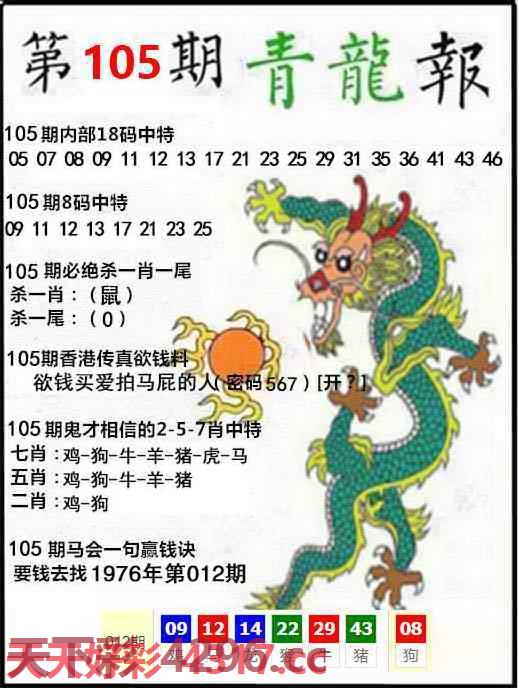 第105期青龍報
105期内部18码中特
05 07 08 09 11 12 13 17 21 23 25 29 31 35 36 41 43 46
105期8码中特
09 11 12 13 17 21 23 25
105期必绝杀一肖一尾
杀一肖：(鼠)
杀一尾：(0)
105期香港传真欲钱料
欲钱买爱拍马屁的人(密码567)[开?]
105期鬼才相信的2-5-7肖中特
七肖：鸡-狗-牛-羊-猪-虎-马
五肖：鸡-狗-牛-羊-猪
二肖：鸡-狗
105期马会一句赢钱诀
要钱去找1976年第012期
012期 09 12 14 22 29 43 08
鸡 龙 猴 牛 猪 狗
天天好彩44967.cc